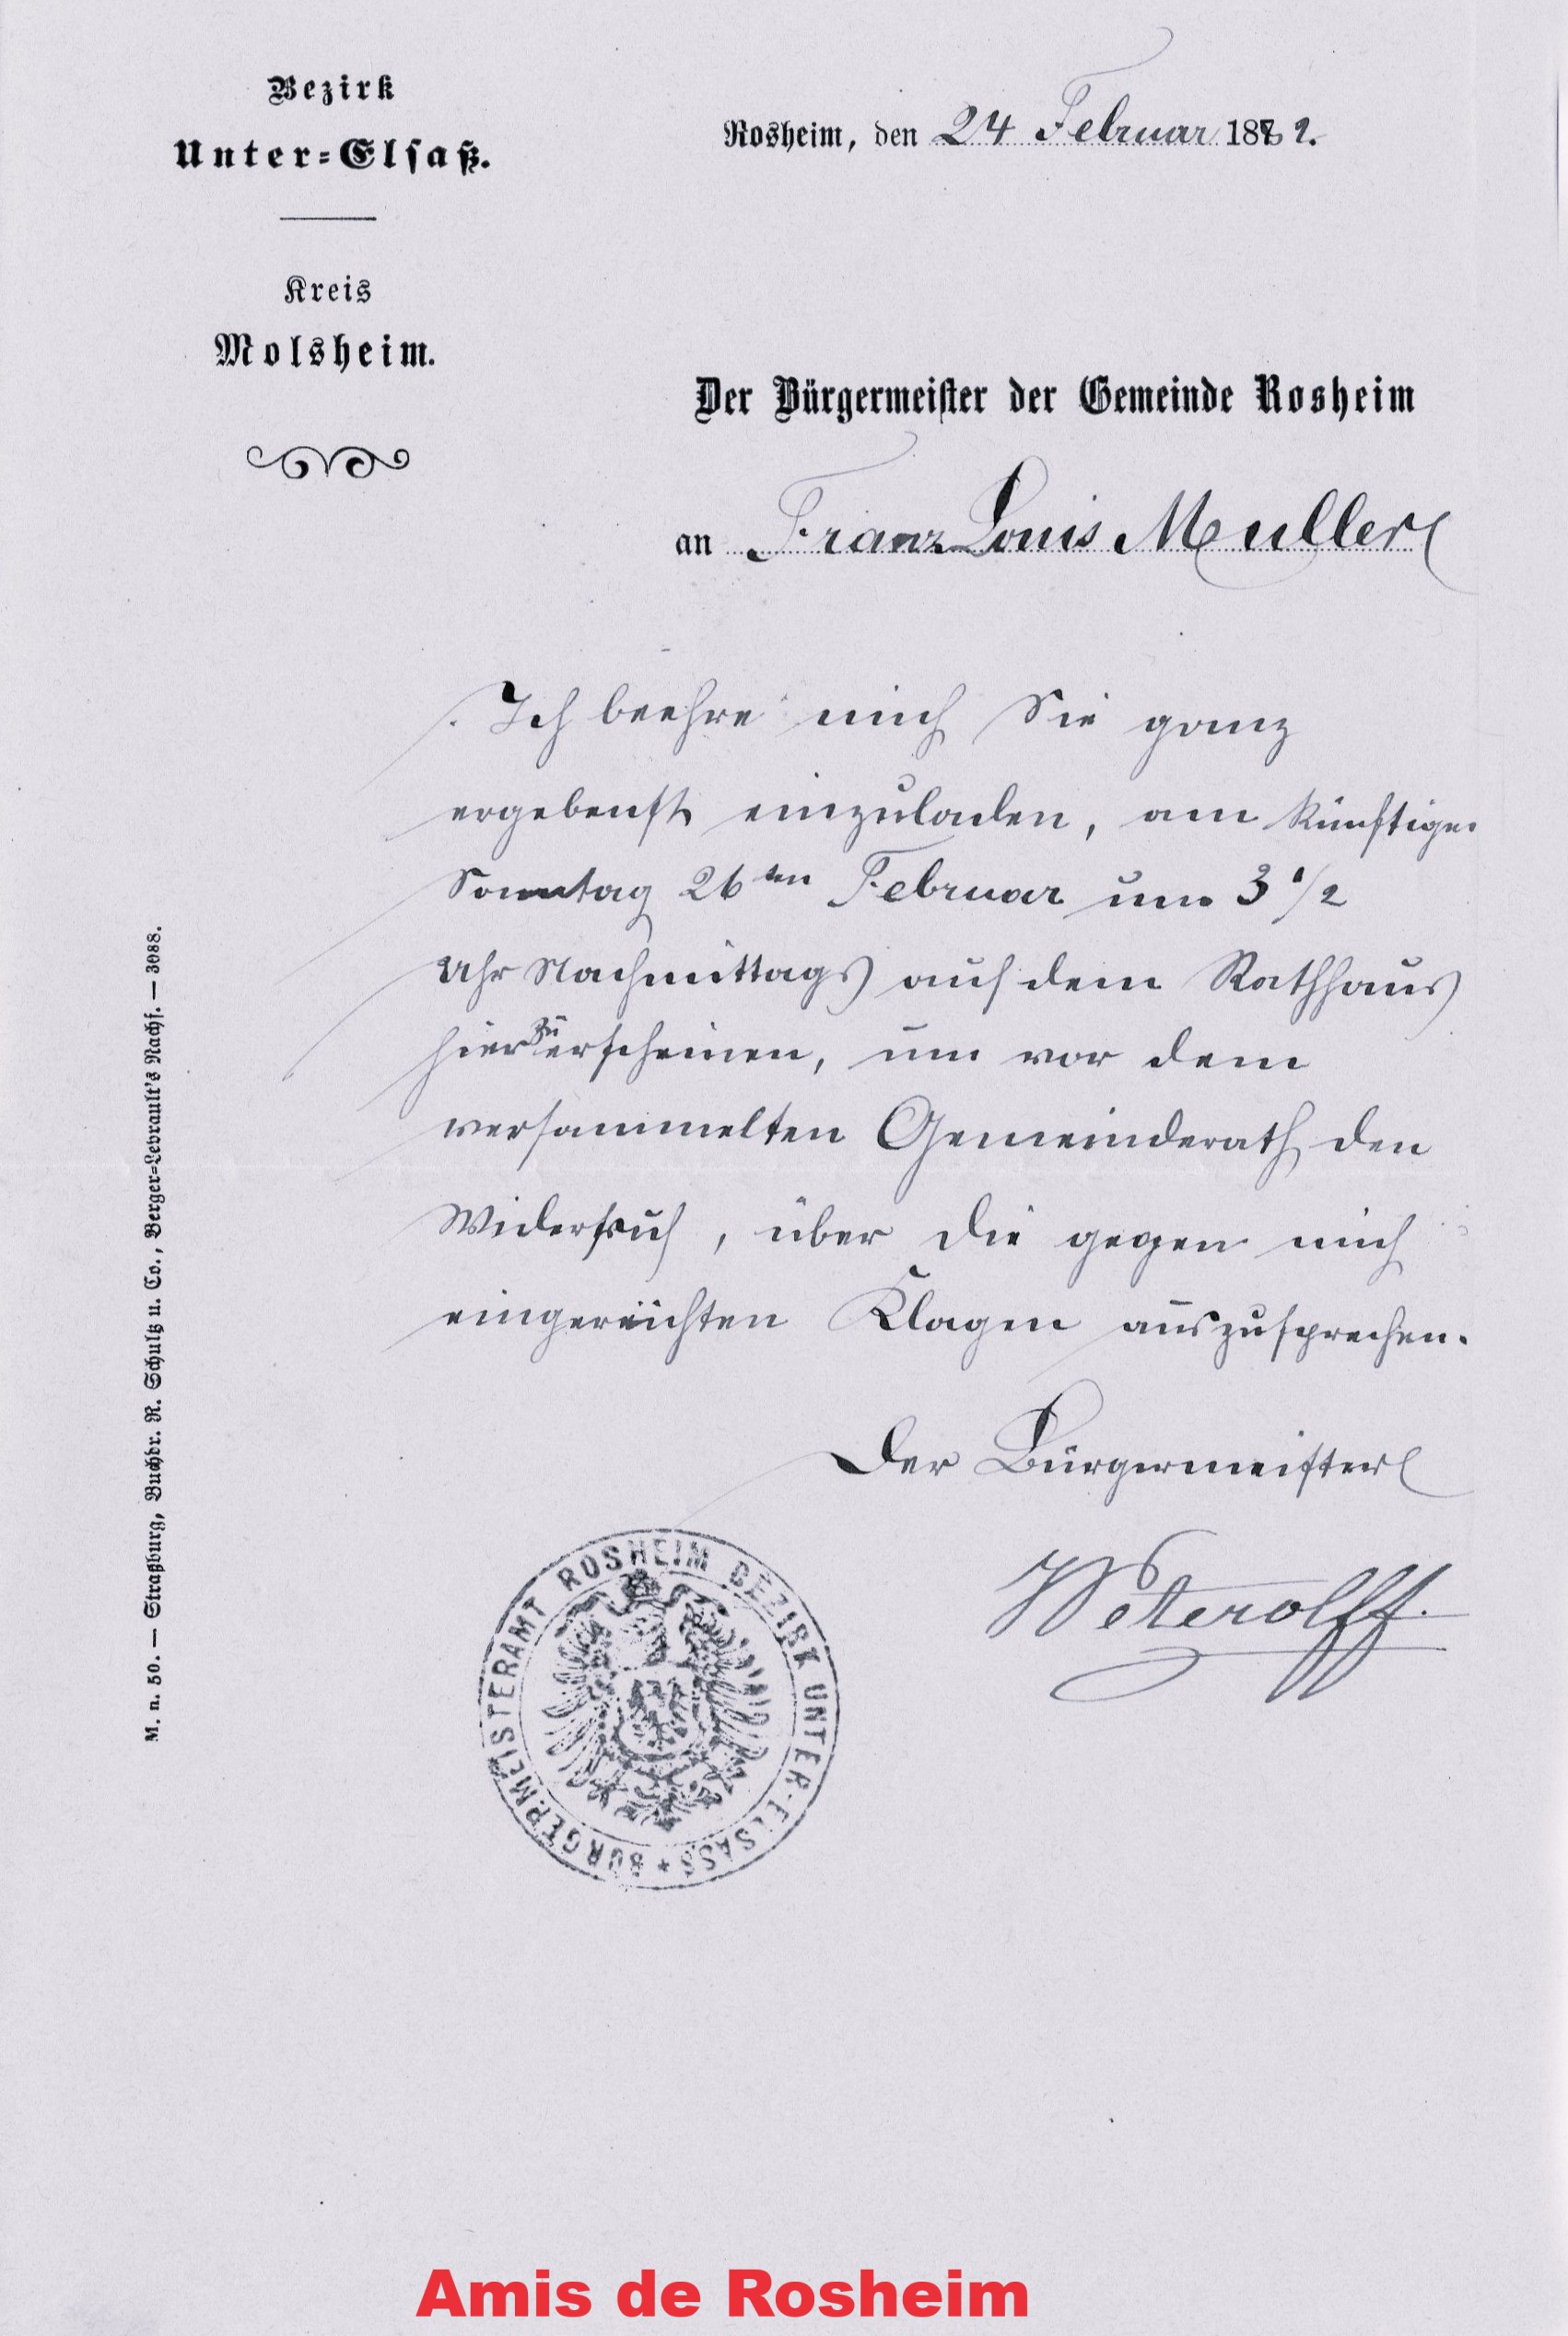 Bezirk
Unter-Elsaß.
Kreis
Molsheim.
Rosheim, den 24 Februar 1882.
Der Bürgermeister der Gemeinde Rosheim
an Franz Louis Muller
Ich beehre mich Sie ganz
ergebenst einzuladen, am künftigen
Sonntag 26ten Februar um 3 1/2
Uhr Nachmittags auf dem Rathhaus
hier zu erscheinen, um vor dem
versammelten Gemeinderath den
über die gegen mich
eingereichten Klagen auszusprechen.
Der Bürgermeister
Weterolff.
BÜRGERMEISTERAMT ROSHEIM BEZIRK UNTER-ELSASS *
M. n. 50. — Straßburg, Buchdr. R. Schultz u. Co., Berger-Levrault's Nachf. — 3088.
Amis de Rosheim